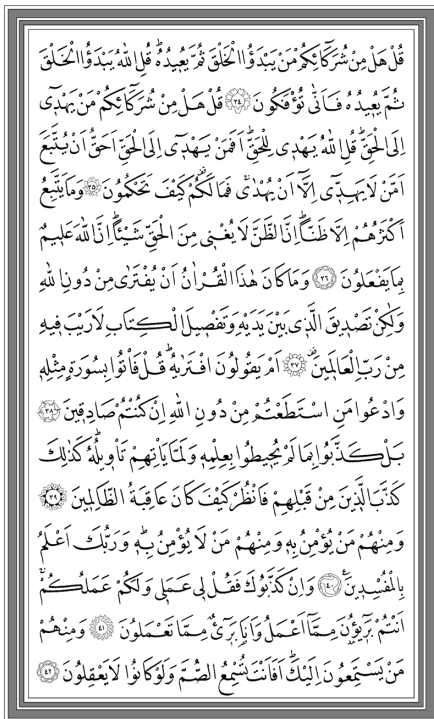 قُلْ هَلْ مِنْ شُرَكَٓائِكُمْ مَنْ يَبْدَؤُا الْخَلْقَ ثُمَّ يُعٖيدُهُؕ قُلِ اللّٰهُ يَبْدَؤُا الْخَلْقَ
ثُمَّ يُعٖيدُهُ فَاَنّٰى تُؤْفَكُونَ ﴿٣٤﴾ قُلْ هَلْ مِنْ شُرَكَٓائِكُمْ مَنْ يَهْدٖٓى
اِلَى الْحَقِّؕ قُلِ اللّٰهُ يَهْدٖى لِلْحَقِّؕ اَفَمَنْ يَهْدٖٓى اِلَى الْحَقِّ اَحَقُّ اَنْ يُتَّبَعَ
اَمَّنْ لَا يَهِدّٖٓى اِلَّٓا اَنْ يُهْدٰىۚ فَمَا لَكُمْ كَيْفَ تَحْكُمُونَ ﴿٣٥﴾ وَمَا يَتَّبِعُ
اَكْثَرُهُمْ اِلَّا ظَنًّاؕ اِنَّ الظَّنَّ لَا يُغْنٖى مِنَ الْحَقِّ شَيْـًٔاؕ اِنَّ اللّٰهَ عَلٖيمٌ
بِمَا يَفْعَلُونَ ﴿٣٦﴾ وَمَا كَانَ هٰذَا الْقُرْاٰنُ اَنْ يُفْتَرٰى مِنْ دُونِ اللّٰهِ
وَلٰكِنْ تَصْدٖيقَ الَّذٖى بَيْنَ يَدَيْهِ وَتَفْصٖيلَ الْكِتَابِ لَا رَيْبَ فٖيهِ
مِنْ رَبِّ الْعَالَمٖينَ ﴿٣٧﴾ اَمْ يَقُولُونَ افْتَرٰيهُؕ قُلْ فَأْتُوا بِسُورَةٍ مِثْلِهٖ
وَادْعُوا مَنِ اسْتَطَعْتُمْ مِنْ دُونِ اللّٰهِ اِنْ كُنْتُمْ صَادِقٖينَ ﴿٣٨﴾
بَلْ كَذَّبُوا بِمَا لَمْ يُحٖيطُوا بِعِلْمِهٖ وَلَمَّا يَأْتِهِمْ تَأْوٖيلُهُؕ كَذٰلِكَ
كَذَّبَ الَّذٖينَ مِنْ قَبْلِهِمْ فَانْظُرْ كَيْفَ كَانَ عَاقِبَةُ الظَّالِمٖينَ ﴿٣٩﴾
وَمِنْهُمْ مَنْ يُؤْمِنُ بِهٖ وَمِنْهُمْ مَنْ لَا يُؤْمِنُ بِهٖؕ وَرَبُّكَ اَعْلَمُ
بِالْمُفْسِدٖينَ ﴿٤٠﴾ وَاِنْ كَذَّبُوكَ فَقُلْ لٖى عَمَلٖى وَلَكُمْ عَمَلُكُمْۚ
اَنْتُمْ بَرٖٓيؤُنَ مِمَّٓا اَعْمَلُ وَاَنَا بَرٖٓىءٌ مِمَّا تَعْمَلُونَ ﴿٤١﴾ وَمِنْهُمْ
مَنْ يَسْتَمِعُونَ اِلَيْكَؕ اَفَاَنْتَ تُسْمِعُ الصُّمَّ وَلَوْ كَانُوا لَا يَعْقِلُونَ ﴿٤٢﴾